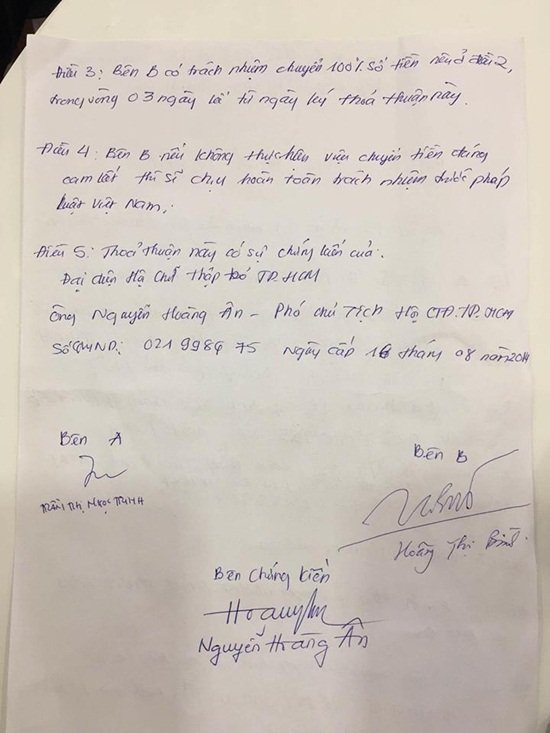 Điều 3: Bên B có trách nhiệm chuyển 100% số tiền nêu ở điều 2,
trong vòng 03 ngày kể từ ngày ký thoả thuận này.
Điều 4: Bên B nếu không thực hiện việc chuyển tiền đúng
cam kết thì sẽ chịu hoàn toàn trách nhiệm trước pháp
luật Việt Nam.
Điều 5: Thoả thuận này có sự chứng kiến của.
Đại diện Hội Chữ thập đỏ TP.HCM
Ông Nguyễn Hoàng Ân - Phó chủ Tịch Hội CTĐ.TP.HCM
Số CMND: 02199867 5 Ngày cấp 16 tháng 08 năm 2014
Bên A
Bên B
TRẦN THỊ NGỌC TRINH
Hoàng Thị
Bên Chứng kiến
Nguyễn Hoàng Ân